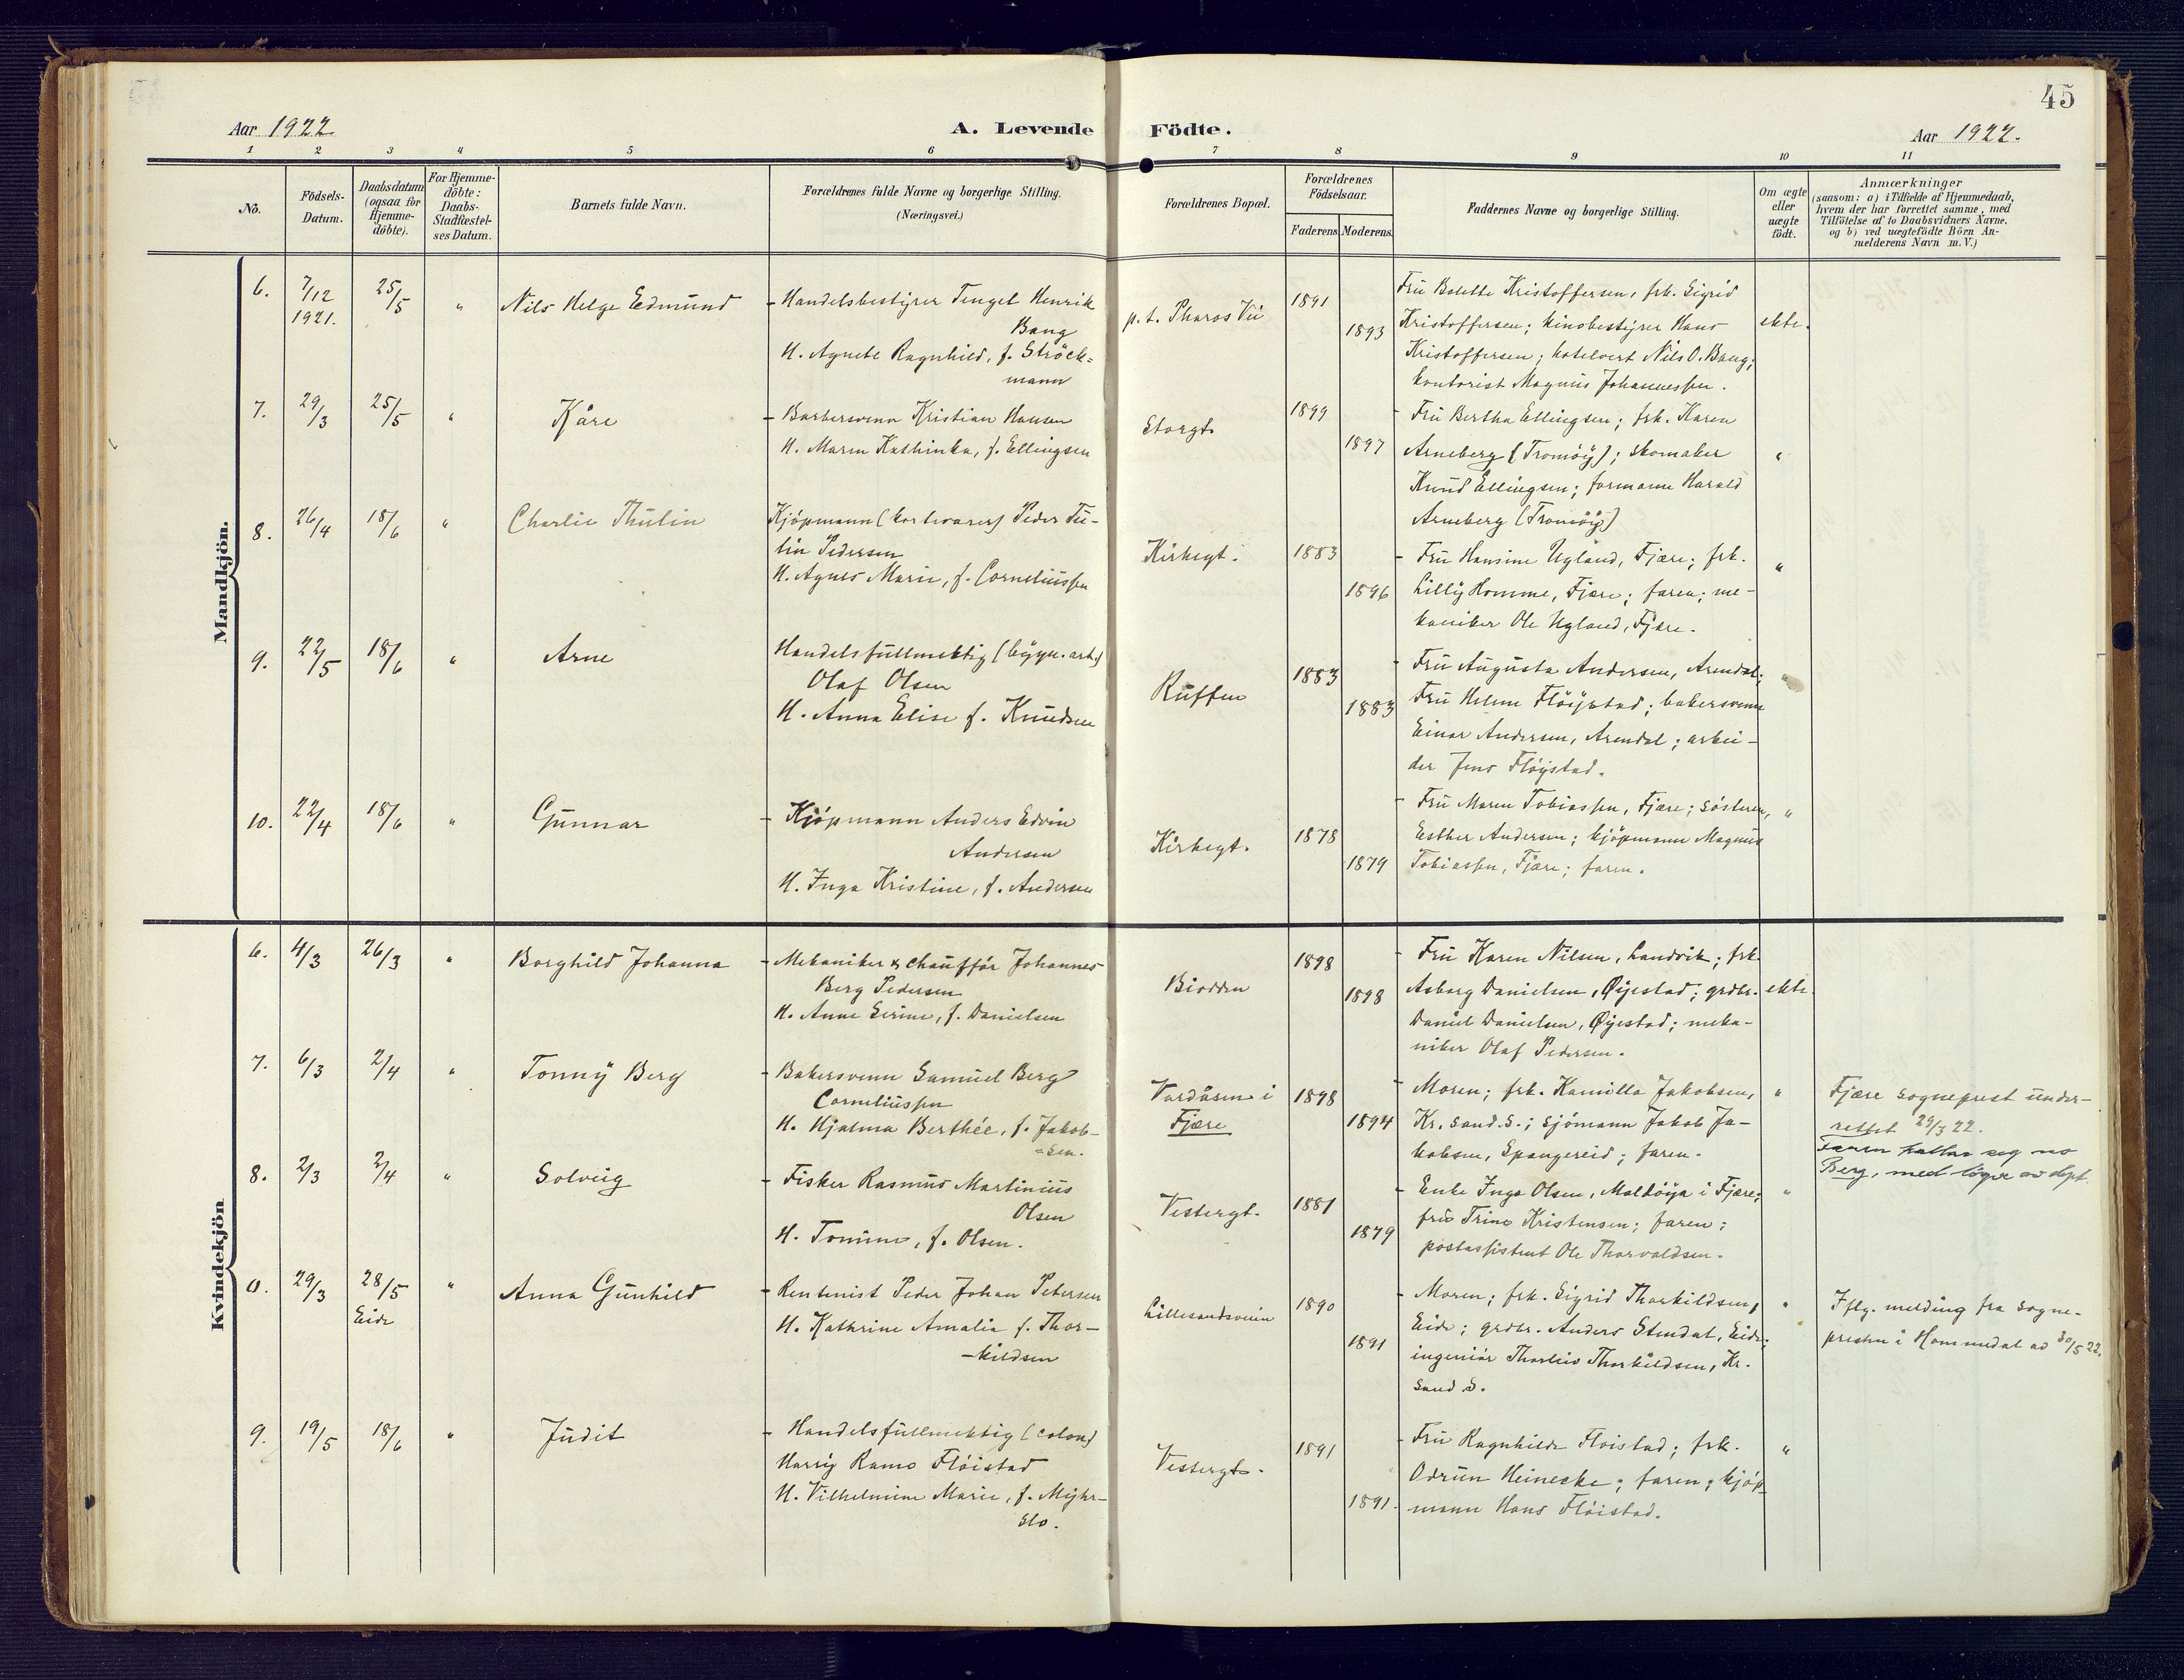 45
Aar 1922.
A. Levende Födte.
Aar 1922.
1 2 3 4 5 6 7 8 9 10 11
No.
Födsels-
Datum.
Daabsdatum
(ogsaa for
Hjemme-
döbte).
For Hjemme-
döbte:
Daabs-
Stadfæstel-
ses Datum.
Barnets fulde Navn.
Forældrenes fulde Navne og borgerlige Stilling.
(Næringsvei.)
Forældrenes Bopæl.
Forældrenes
Födselsaar.
Faderens Moderens.
Faddernes Navne og borgerlige Stilling.
Om ægte
eller
uægte
födt.
Anmærkninger
(saasom: a) i Tilfælde af Hjemmedaab,
hvem der har forrettet samme, med
Tilföielse af to Daabsvidners Navne,
og b) ved uægtefödte Börn An-
melderens Navn m.V.)
Mandkjön.
6. 7/12 1921. 25/5 " Nils Helge Edmund
- Handelsbestyrer Tengel Henrik
Bang
H. Agnete Ragnhild, f. Ströck=
mann
p. t. Pharos Vei
1891
1893
Fru Bolette Kristoffersen, frk. Sigrid
Kristoffersen; kinobestyrer Hans
Kristoffersen; hotelvert Nils O. Bang;
kontorist Magnus Johannessen.
ekte.
7. 29/3 25/5 " Kåre
- Barbersvenn Kristian Hansen
H. Maren Kathinka, f. Ellingsen
Storgt.
1899
1897
- Fru Bertha Ellingsen; frk. Karen
Arneberg (Tromöy); skomaker
Knud Ellingsen; formann Harald
Arneberg (Tromöy)
"
8. 26/4 18/6 " Charlie Thulin
Kjöpmann (kortevarer) Peder Tu-
lin Pedersen
H. Agnes Marie, f. Corneliussen
Kirkegt.
1883
1896
- Fru Hansine Ugland, Fjære; frk.
Lilly Homme, Fjære; faren; me-
kaniker Ole Ugland, Fjære.
"
9. 22/5 18/6 " Arne
Handelsfullmektig (bygn. art.)
Olaf Olsen
H. Anna Elise f. Knudsen
Kuffen
1883
1883
- Fru Augusta Andersen, Arendal;
Fru Helene Flöystad; bakersvenn
Einar Andersen, Arendal; arbei-
der Jens Flöystad.
"
10. 22/4 18/6 " Gunnar
- Kjöpmann Anders Edvin
Andersen
H. Inga Kristine, f. Andersen
Kirkegt.
1878
1879
- Fru Maren Tobiassen, Fjære; sösteren,
Esther Andersen; kjöpmann Magnus
Tobiassen, Fjære; faren.
"
Kvindekjön
6. 4/3 26/3 " Borghild Johanna
- Mekaniker & chauffför Johannes
Berg Pedersen
H. Anne Serine, f. Danielsen
Biodden
1898
1898
- Fru Karen Nilsen, Landvik; frk.
Asborg Danielsen, Øyestad; grdbr.
Daniel Danielsen, Øyestad; meka-
niker Olaf Pedersen.
ekte.
7. 6/3 2/4 " Tonny Berg
- Bakersvenn Samuel Berg
Corneliussen
H. Hjalma Berthée, f. Jakob-
=sen.
Vardåsen i
Fjære
1898
1894
- Moren; frk. Kamilla Jakobsen,
Kr.sand.S.; sjömann Jakob Ja-
kobsen, Spangereid; faren.
"
Fjære sogneprest under-
rettet 29/3 22.
Faren kaller seg no
Berg, med löyve av dept.
8. 2/3 2/4 " Solveig
- Fisker Rasmus Martinius
Olsen
H. Tomine, f. Olsen.
Vestergt.
1881
1879
- Enke Inga Olsen, Maldöya i Fjære;
fru Trine Kristensen; faren;
postassistent Ole Thorvaldsen.
"
0. 29/3 28/5 Eide " Anna Gunhild
- Rentenist Peder Johan Petersen
H. Kathrine Amalia f. Thor-
-kildsen
Lillesandsveien
1890
1891
- Moren; frk. Sigrid Thorkildsen,
Eide; grdbr. Anders Stendal, Eide;
ingeniör Thorleiv Thorkildsen, Kr.
sand S.
"
Iflg. melding fra sogne-
presten i Hommedal av 30/5 22.
9. 19/5 18/6 " Judit
- Handelsfullmektig (colon)
Harry Rams Flöistad
H. Vilhelmine Marie, f. Myhr-
slo.
Vestergt.
1891
1891.
- Fru Ragnhilde Flöistad; frk.
Odrun Heinecke; faren; kjöp-
mann Hans Flöistad.
"